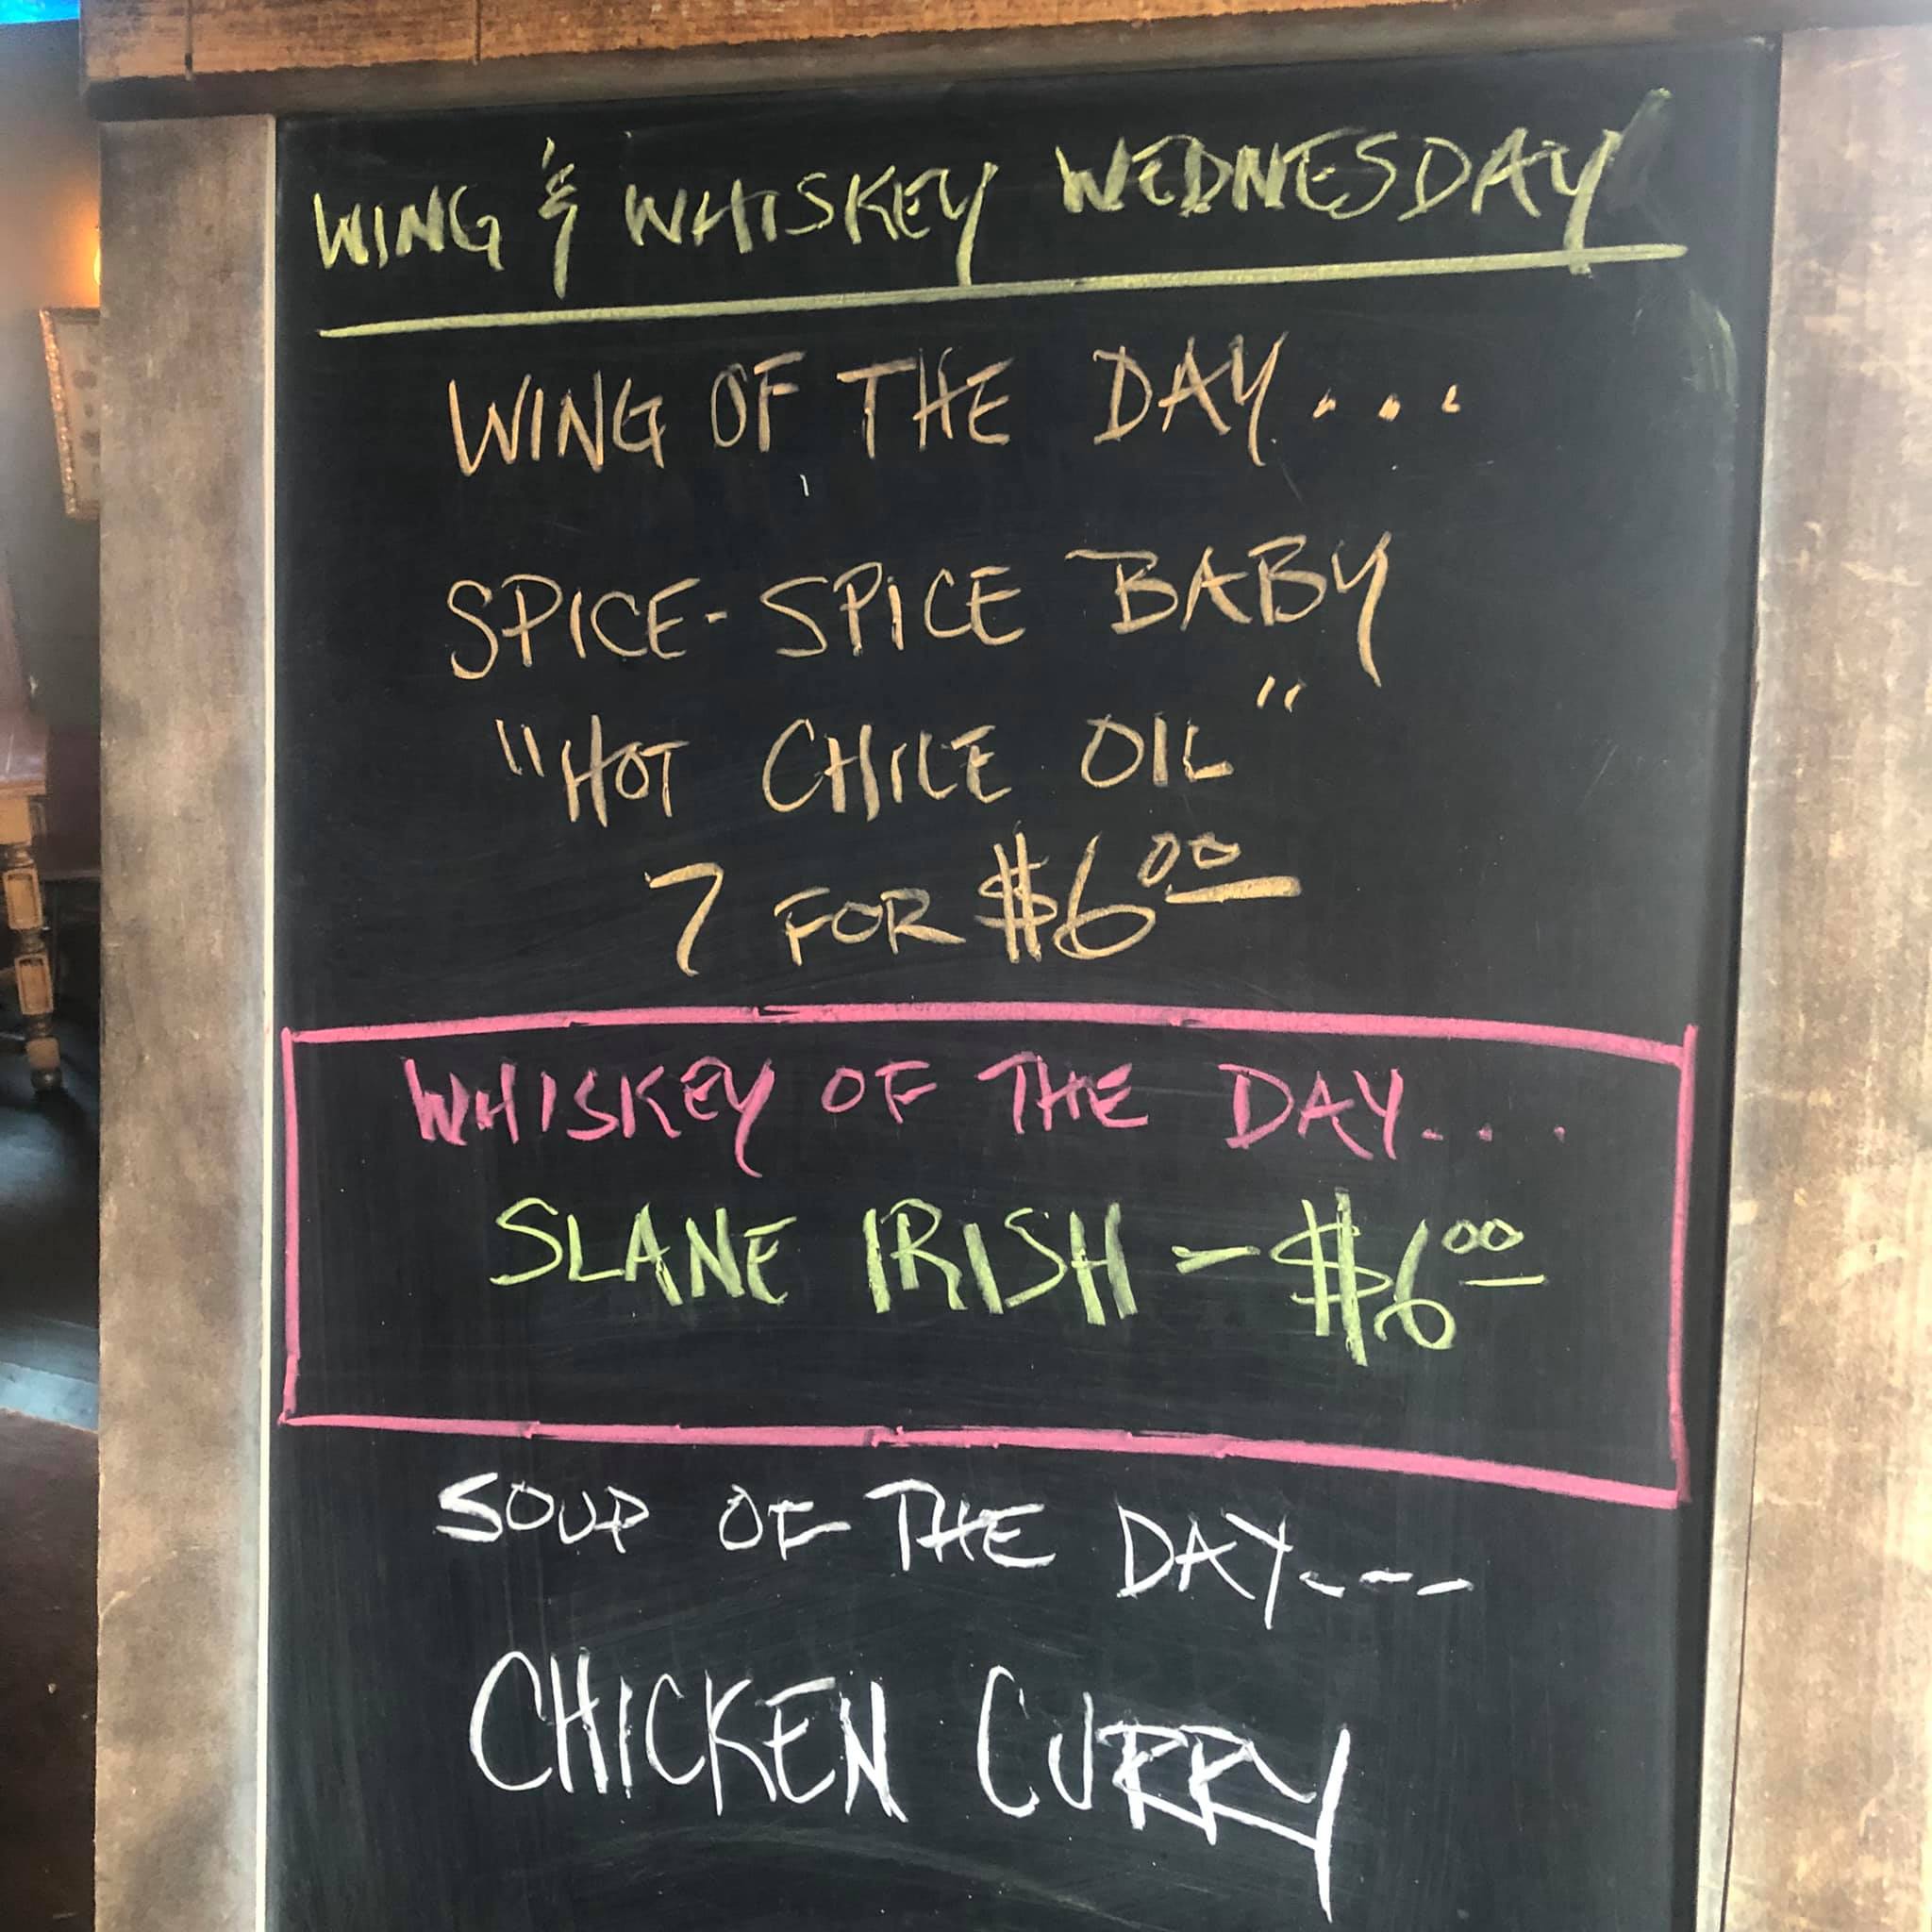 WING & WHISKEY WEDNESDAY
WING OF THE DAY...
SPICE-SPICE BABY
"HOT CHILE OIL"
7 FOR $600
WHISKEY OF THE DAY...
SLANE IRISH - $600
SOUP OF THE DAY---
CHICKEN CURRY